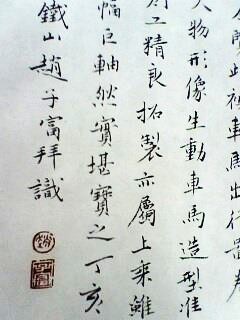 此車馬出行圖
人物形像生動車馬造型准
工精良拓製亦屬上乘雖
幅巨軸然實堪寶之丁亥
鐵山趙子富拜識